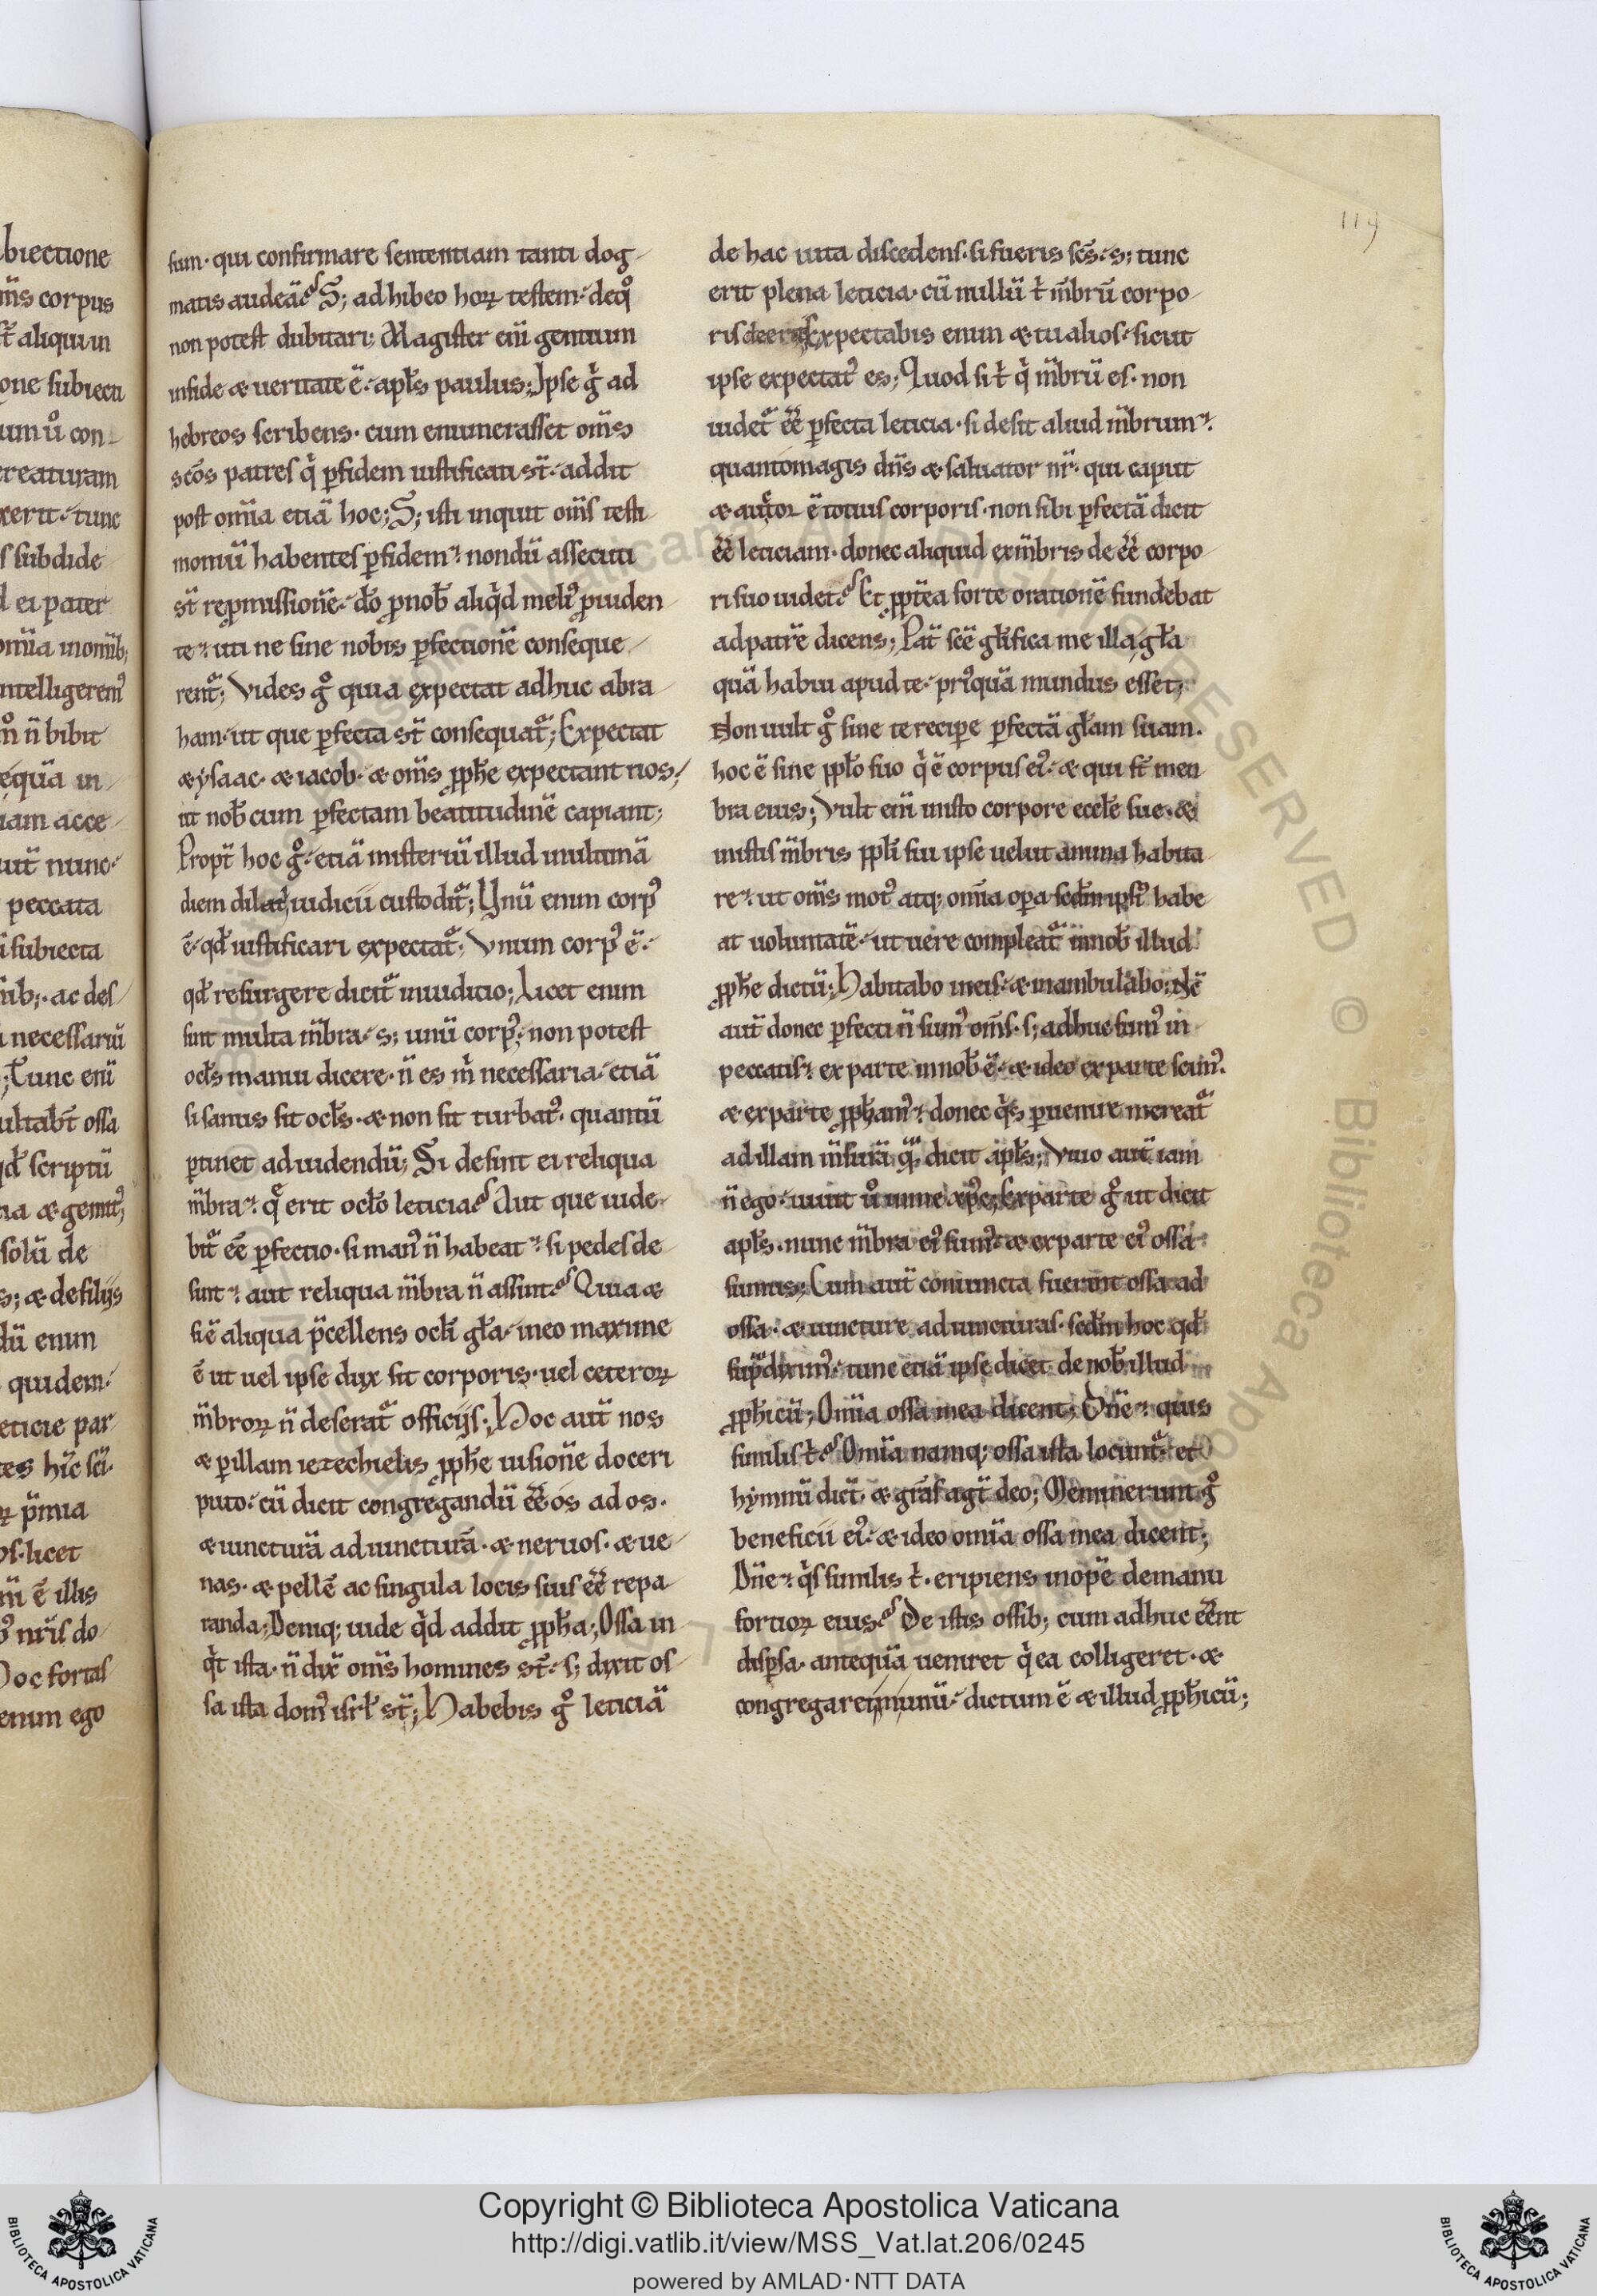 biectione
m̅s corpus
aliqui in
one subiecti
um ů con
creaturam
xerit tunc
s subdide
d ei pater
om̅ia in om̅ib;
ntelligerem᾿
n̅ bibit
equa̅ in
iam acce
uit̅ nunc
peccata
subiecta
ac des
necessariu̅
; Tunc eni̅
ultabt̅ ossa
qd̅ scriptu̅
solu̅ de
s; æ de filijs
du̅ enim
quidem
eticie par
p̅mia
os licet
m̅ e̅ illis
nr̅is do
Hoc fortas
enim ego
sum· qui confirmare sententiam tanti dog
matis audea̅? S; adhibeo hoꝝ testem· de q̊
non potest dubitari; Magister eni̅ gentium
in fide æ ueritate e̅· apl̅s paulus; Ipse g̊ ad
hebreos scribens· cum enumerasset om̅s
sc̅os patres q̇ ꝑ fidem iustificati st̅· addit
post om̅ia etia̅ hoc; S; isti inquit om̅s testi
moniu̅ habentes ꝑ fidem· nondu̅ assecuti
st̅ repmissione̅· do̅ ꝓ nob̅ aliq̇d meli᾿ ꝓuiden
te· uti ne sine nobis ꝑfectione̅ conseque
rent̅; Vides g̊ quia expectat adhuc abra
ham· ut que ꝑfecta st̅ consequat̅; Expectat
æ ysaac· æ iacob· æ om̅s ꝓph̅e expectant nos
ut nob̅cum ꝑfectam beatitudine̅ capiant;
Propt̅ hoc g̊· etia̅ misteriu̅ illud in ultima̅
diem dilati iudicii custodit̅; Unu̅ enim corp᾿
e̅· qd̅ iustificari expectat̅· Vnum corp᾿ e̅·
qd̅ resurgere dicit̅ in iuditio; Licet enim
sint multa m̅bra· s; unu̅ corp᾿· non potest
ocl̅s manui dicere· n̅ es ṁ necessaria· etia̅
si sanus sit ocl̅s· æ non sit turbat᾿· quantu̅
ꝑtinet ad uidendu̅; Si desint ei reliqua
m̅bra· q̅ erit ocl̅o leticia? Aut que uide
bit̅ ee̅ ꝑfectio· si man᾿ n̅ habeat· si pedes de
sint· aut reliqua m̅bra n̅ assint? Quia æ
si e̅ aliqua p̅cellens ocl̅i gl̅a· in eo maxime
e̅ ut uel ipse dux sit corporis· uel ceteroꝝ
m̅broꝝ n̅ deserat̅ officijs; Hoc aut̅ nos
æ ꝑ illam iezechielis ꝓph̅e uisione̅ doceri
puto· cu̅ dicit congregandu̅ ee̅ os ad os·
æ iunctura̅ ad iunctura̅· æ neruos· æ ue
nas· æ pelle̅ ac singula locis suis ee̅ repa
randa; Deniq; uide q̇d addit ꝓph̅a; Ossa in
q̇t ista· n̅ dix̅ om̅s homines st̅· s; dixit os
sa ista dom᾿ isrl̅ st̅; Habebis g̊ leticia̅
119
de hac uita discedens· si fueris sc̅s· s; tunc
erit plena leticia· cu̅ nullu̅ ṫ m̅bru̅ corpo
ris deerit Expectabis enim æ tu alios· sicut
ipse expectat᾿ es; Quod si ṫ q̇ m̅bru̅ es· non
uidet̅ ee̅ ꝑfecta leticia· si desit aliud m̅brum·
quantomagis dn̅s æ saluator nr̅· qui caput
æ auctor e̅ totius corporis· non sibi ꝑfecta̅ dicit
ee̅ leticiam· donec aliquid ex m̅bris deee̅ corpo
ri suo uidet̅? Et ꝓpt̅ea forte oratione̅ fundebat
ad patre̅ dicens; Pat̅ sc̅e gl̅ifica me illa gl̅a
qua̅ habui apud te· pri᾿qua̅ mundus esset;
Non uult g̊ sine te reciꝑe ꝑfecta̅ gl̅am suam·
hoc e̅ sine ppl̅o suo q̇ e̅ corpus ei᾿· æ qui st̅ men
bra eius; Vult eni̅ in isto corpore eccl̅e sue· æ
in istis m̅bris ppl̅i sui ipse uelut anima habita
re· ut om̅s mot᾿ atq; om̅ia oꝑa scd̅m ipsi᾿ habe
at uoluntate̅· ut uere compleat̅ in nob̅ illud
ꝓph̅e dictu̅; Habitabo in eis· æ inambulabo; Nc̅
aut̅ donec ꝑfecti n̅ sum᾿ om̅s· s; adhuc sum᾿ in
peccatis· ex parte in nob̅ e̅· æ ideo ex parte scim᾿·
æ ex parte ꝓph̅am᾿· donec q̇s ꝑuenire mereat̅
ad illam m̅sura̅ qua̅ dicit apl̅s; Viuo aut̅ iam
n̅ ego· uiuit ů in me xp̅c; Ex parte g̊ ut dicit
apl̅s· nunc m̅bra ei᾿ sum᾿· æ ex parte ei᾿ ossa
sumus; Cum aut̅ coniuncta fuerint ossa ad
ossa· æ iuncture ad iuncturas· scd̅m hoc qd̅
sup̅dixim᾿· tunc etia̅ ipse dicet de nob̅ illud
ꝓph̅icu̅; Om̅ia ossa mea dicent; Dn̅e· quis
similis ṫ? Om̅ia namq; ossa ista locunt̅· et
hymnu̅ dict̅· æ gr̅as agt̅ deo; Meminerunt g̊
beneficii ei᾿· æ ideo om̅ia ossa mea dicent;
Dn̅e· q̇s similis ṫ· eripiens inope̅ de manu
fortioꝝ eius? De istis ossib; cum adhuc ee̅nt
disꝑsa· antequa̅ ueniret q̇ ea colligeret· æ
congregaret in unu̅· dictum e̅ æ illud ꝓph̅icu̅;
Copyright © Biblioteca Apostolica Vaticana
http://digi.vatlib.it/view/MSS_Vat.lat.206/0245
powered by AMLAD·NTT DATA
BIBLIOTECA APOSTOLICA VATICANA
BIBLIOTECA APOSTOLICA VATICANA